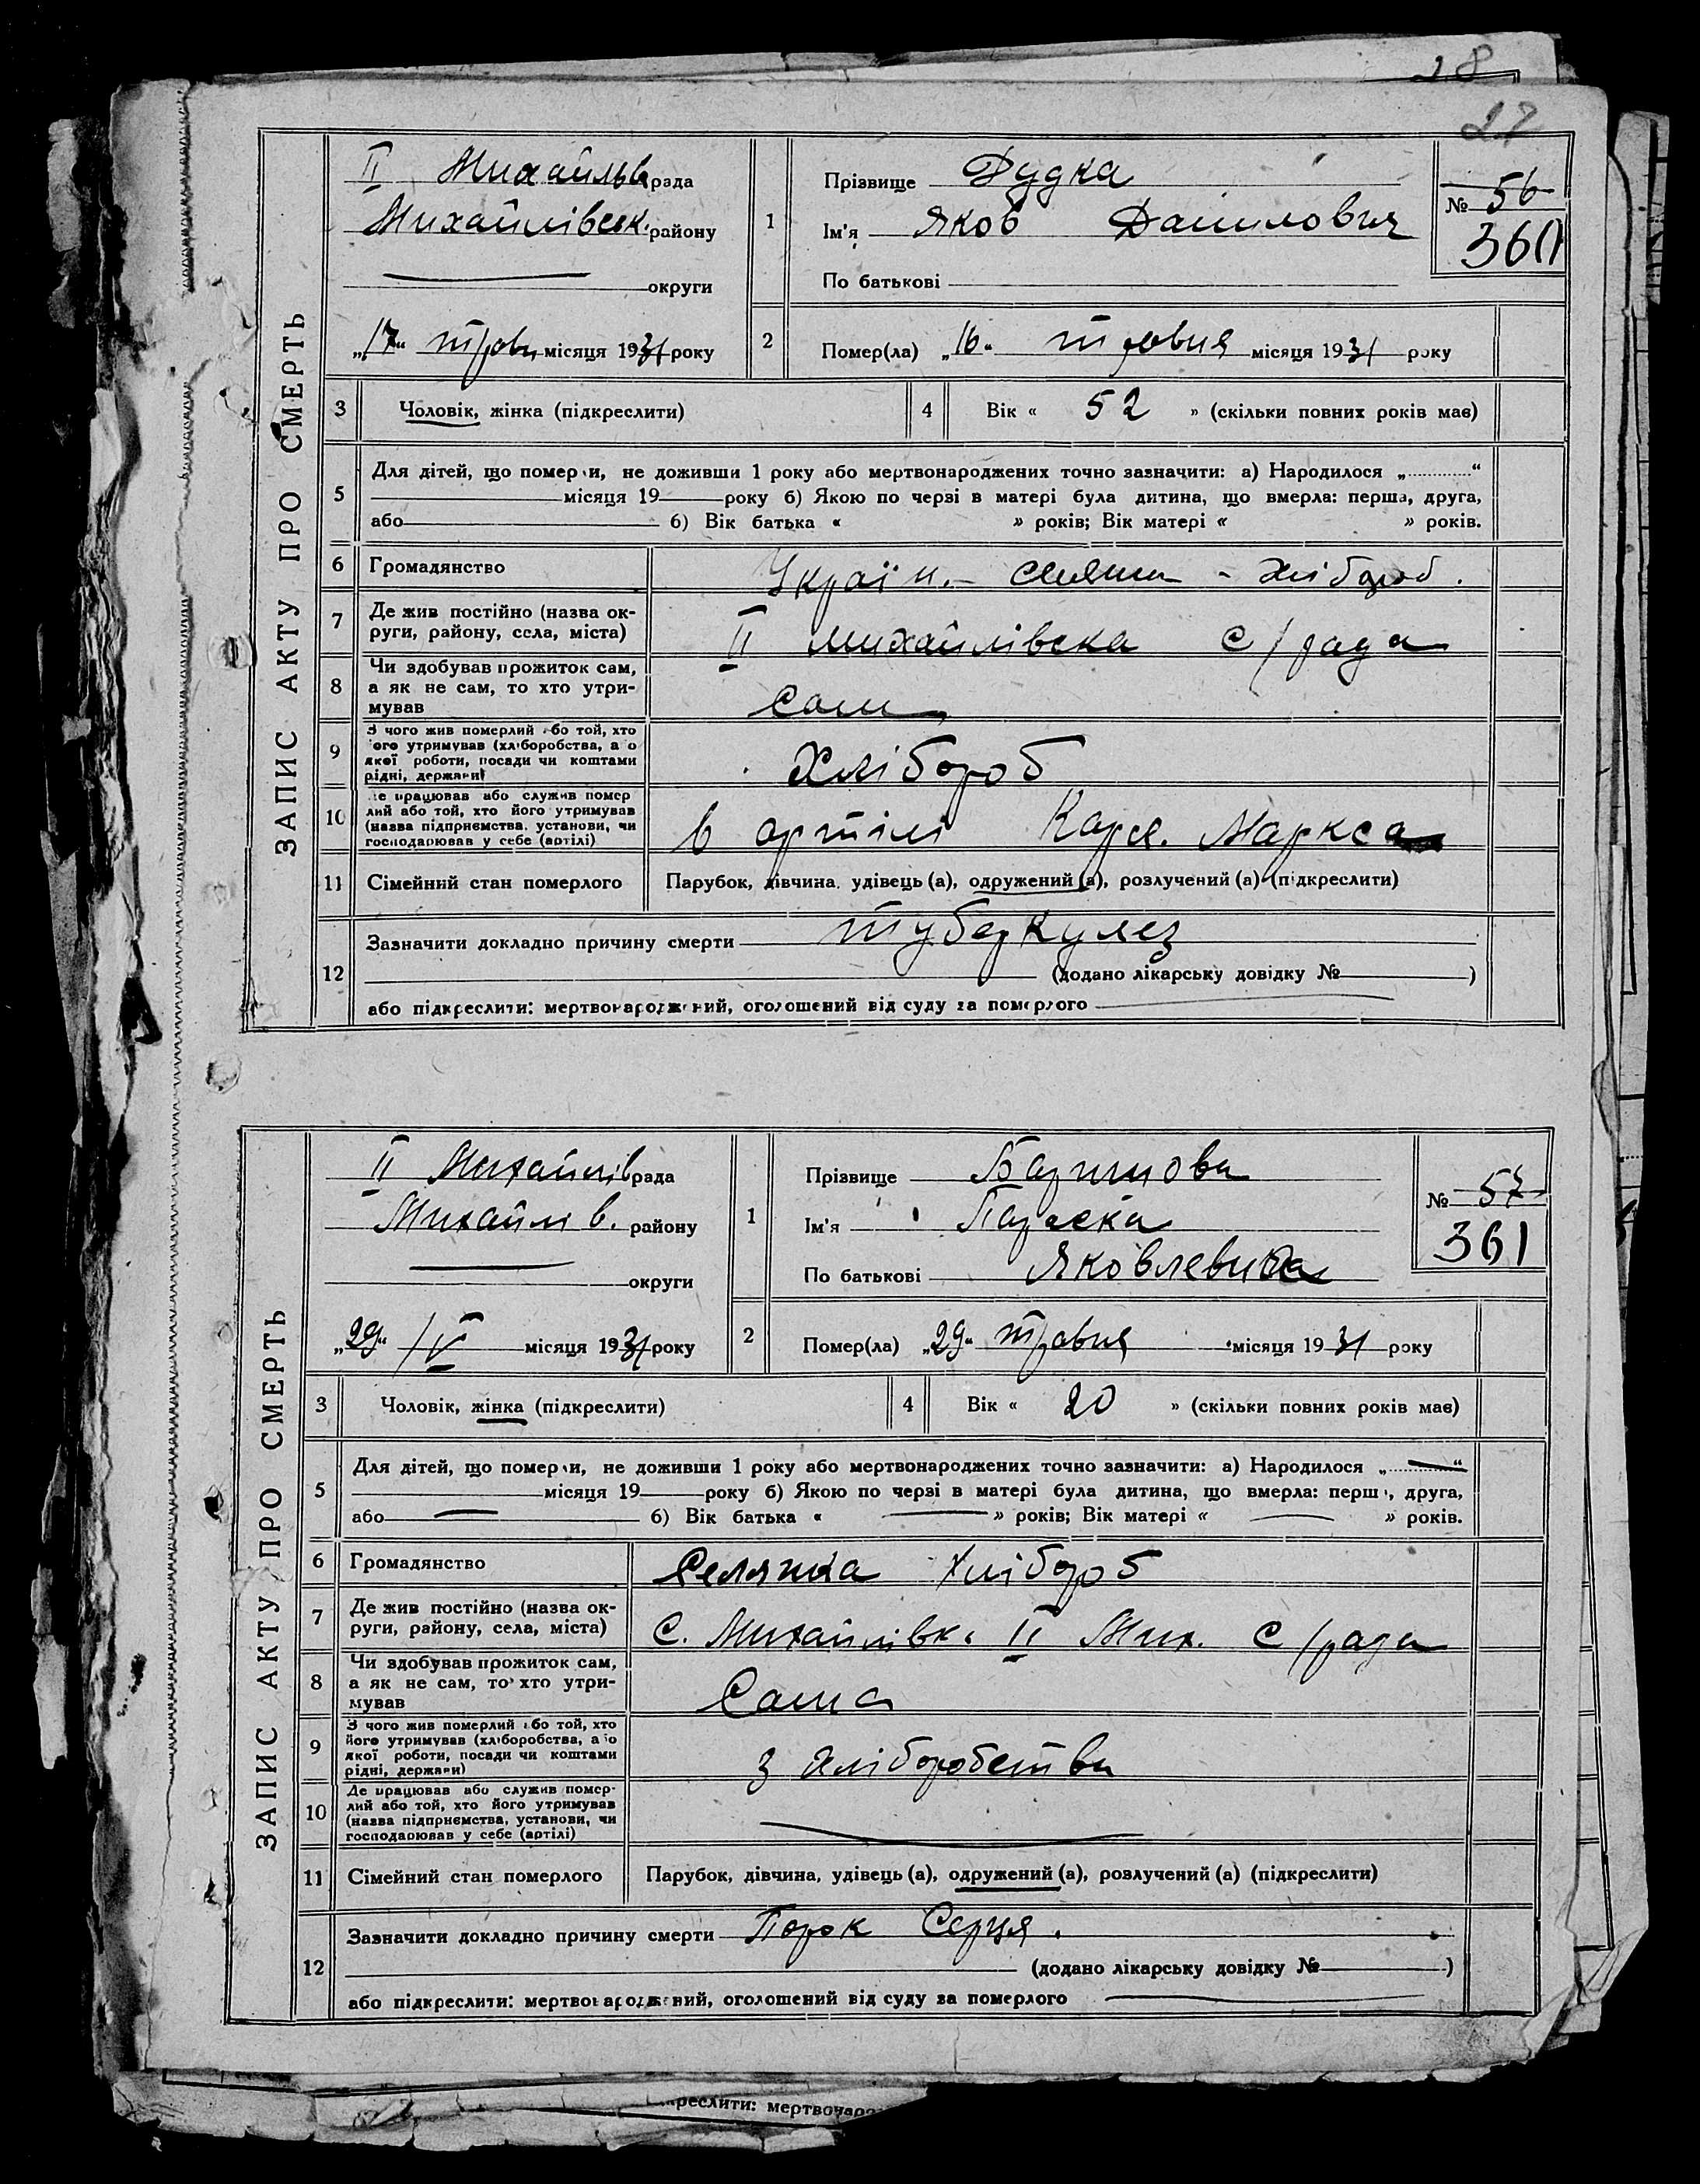 28
27
ЗАПИС АКТУ ПРО СМЕРТЬ
II Михайлів рада
Михайлівськ. району
округи
„17“ травн місяця 1931 року
1
Прізвище Дудка
Ім'я Яков Данилович
По батькові
№ 56
360
2
Помер(ла) „16“ травня місяця 1931 року
3 Чоловік, жінка (підкреслити)
4 Вік « 52 » (скільки повних років має)
5
Для дітей, що померли, не доживши 1 року або мертвонароджених точно зазначити: а) Народилося „ “
місяця 19 року б) Якою по черзі в матері була дитина, що вмерла: перша, друга,
або б) Вік батька « » років; Вік матері « » років.
6 Громадянство Україн. - селянин - хлібороб.
7
Де жив постійно (назва ок-
руги, району, села, міста)
II михайлівська с/рада
8
Чи здобував прожиток сам,
а як не сам, то хто утри-
мував
сам
9
З чого жив померлий або той, хто
його утримував (хліборобства, або
якої роботи, посади чи коштами
рідні, держави)
Хлібороб
10
Де працював або служив помер
лий або той, хто його утримував
(назва підприємства, установи, чи
господарював у себе (артілі)
в артілі Карл. Маркса
11 Сімейний стан померлого Парубок, дівчина, удівець (а), одружений (а), розлучений (а) (підкреслити)
12
Зазначити докладно причину смерти туберкулез
(додано лікарську довідку № )
або підкреслити: мертвонароджений, оголошений від суду за померлого
ЗАПИС АКТУ ПРО СМЕРТЬ
II Михайлів рада
Михайлів. району
округи
„29“ /V місяця 1931 року
1
Прізвище
Ім'я Параска
По батькові
№ 57
361
2
Помер(ла) „29“ травня місяця 1931 року
3 Чоловік, жінка (підкреслити)
4 Вік « 20 » (скільки повних років має)
5
Для дітей, що померли, не доживши 1 року або мертвонароджених точно зазначити: а) Народилося „ “
місяця 19 року б) Якою по черзі в матері була дитина, що вмерла: перша, друга,
або б) Вік батька « » років; Вік матері « » років.
6 Громадянство Селянка хлібороб
7
Де жив постійно (назва ок-
руги, району, села, міста)
С. Михайлівк. II Мих. с/рада
8
Чи здобував прожиток сам,
а як не сам, то хто утри-
мував
Сама
9
З чого жив померлий або той, хто
його утримував (хліборобства, або
якої роботи, посади чи коштами
рідні, держави)
з хліборобства
10
Де працював або служив помер-
лий або той, хто його утримував
(назва підприємства, установи, чи
господарював у себе (артілі)
11 Сімейний стан померлого Парубок, дівчина, удівець (а), одружений (а), розлучений (а) (підкреслити)
12
Зазначити докладно причину смерти Порок Серця.
(додано лікарську довідку № )
або підкреслити: мертвонароджений, оголошений від суду за померлого